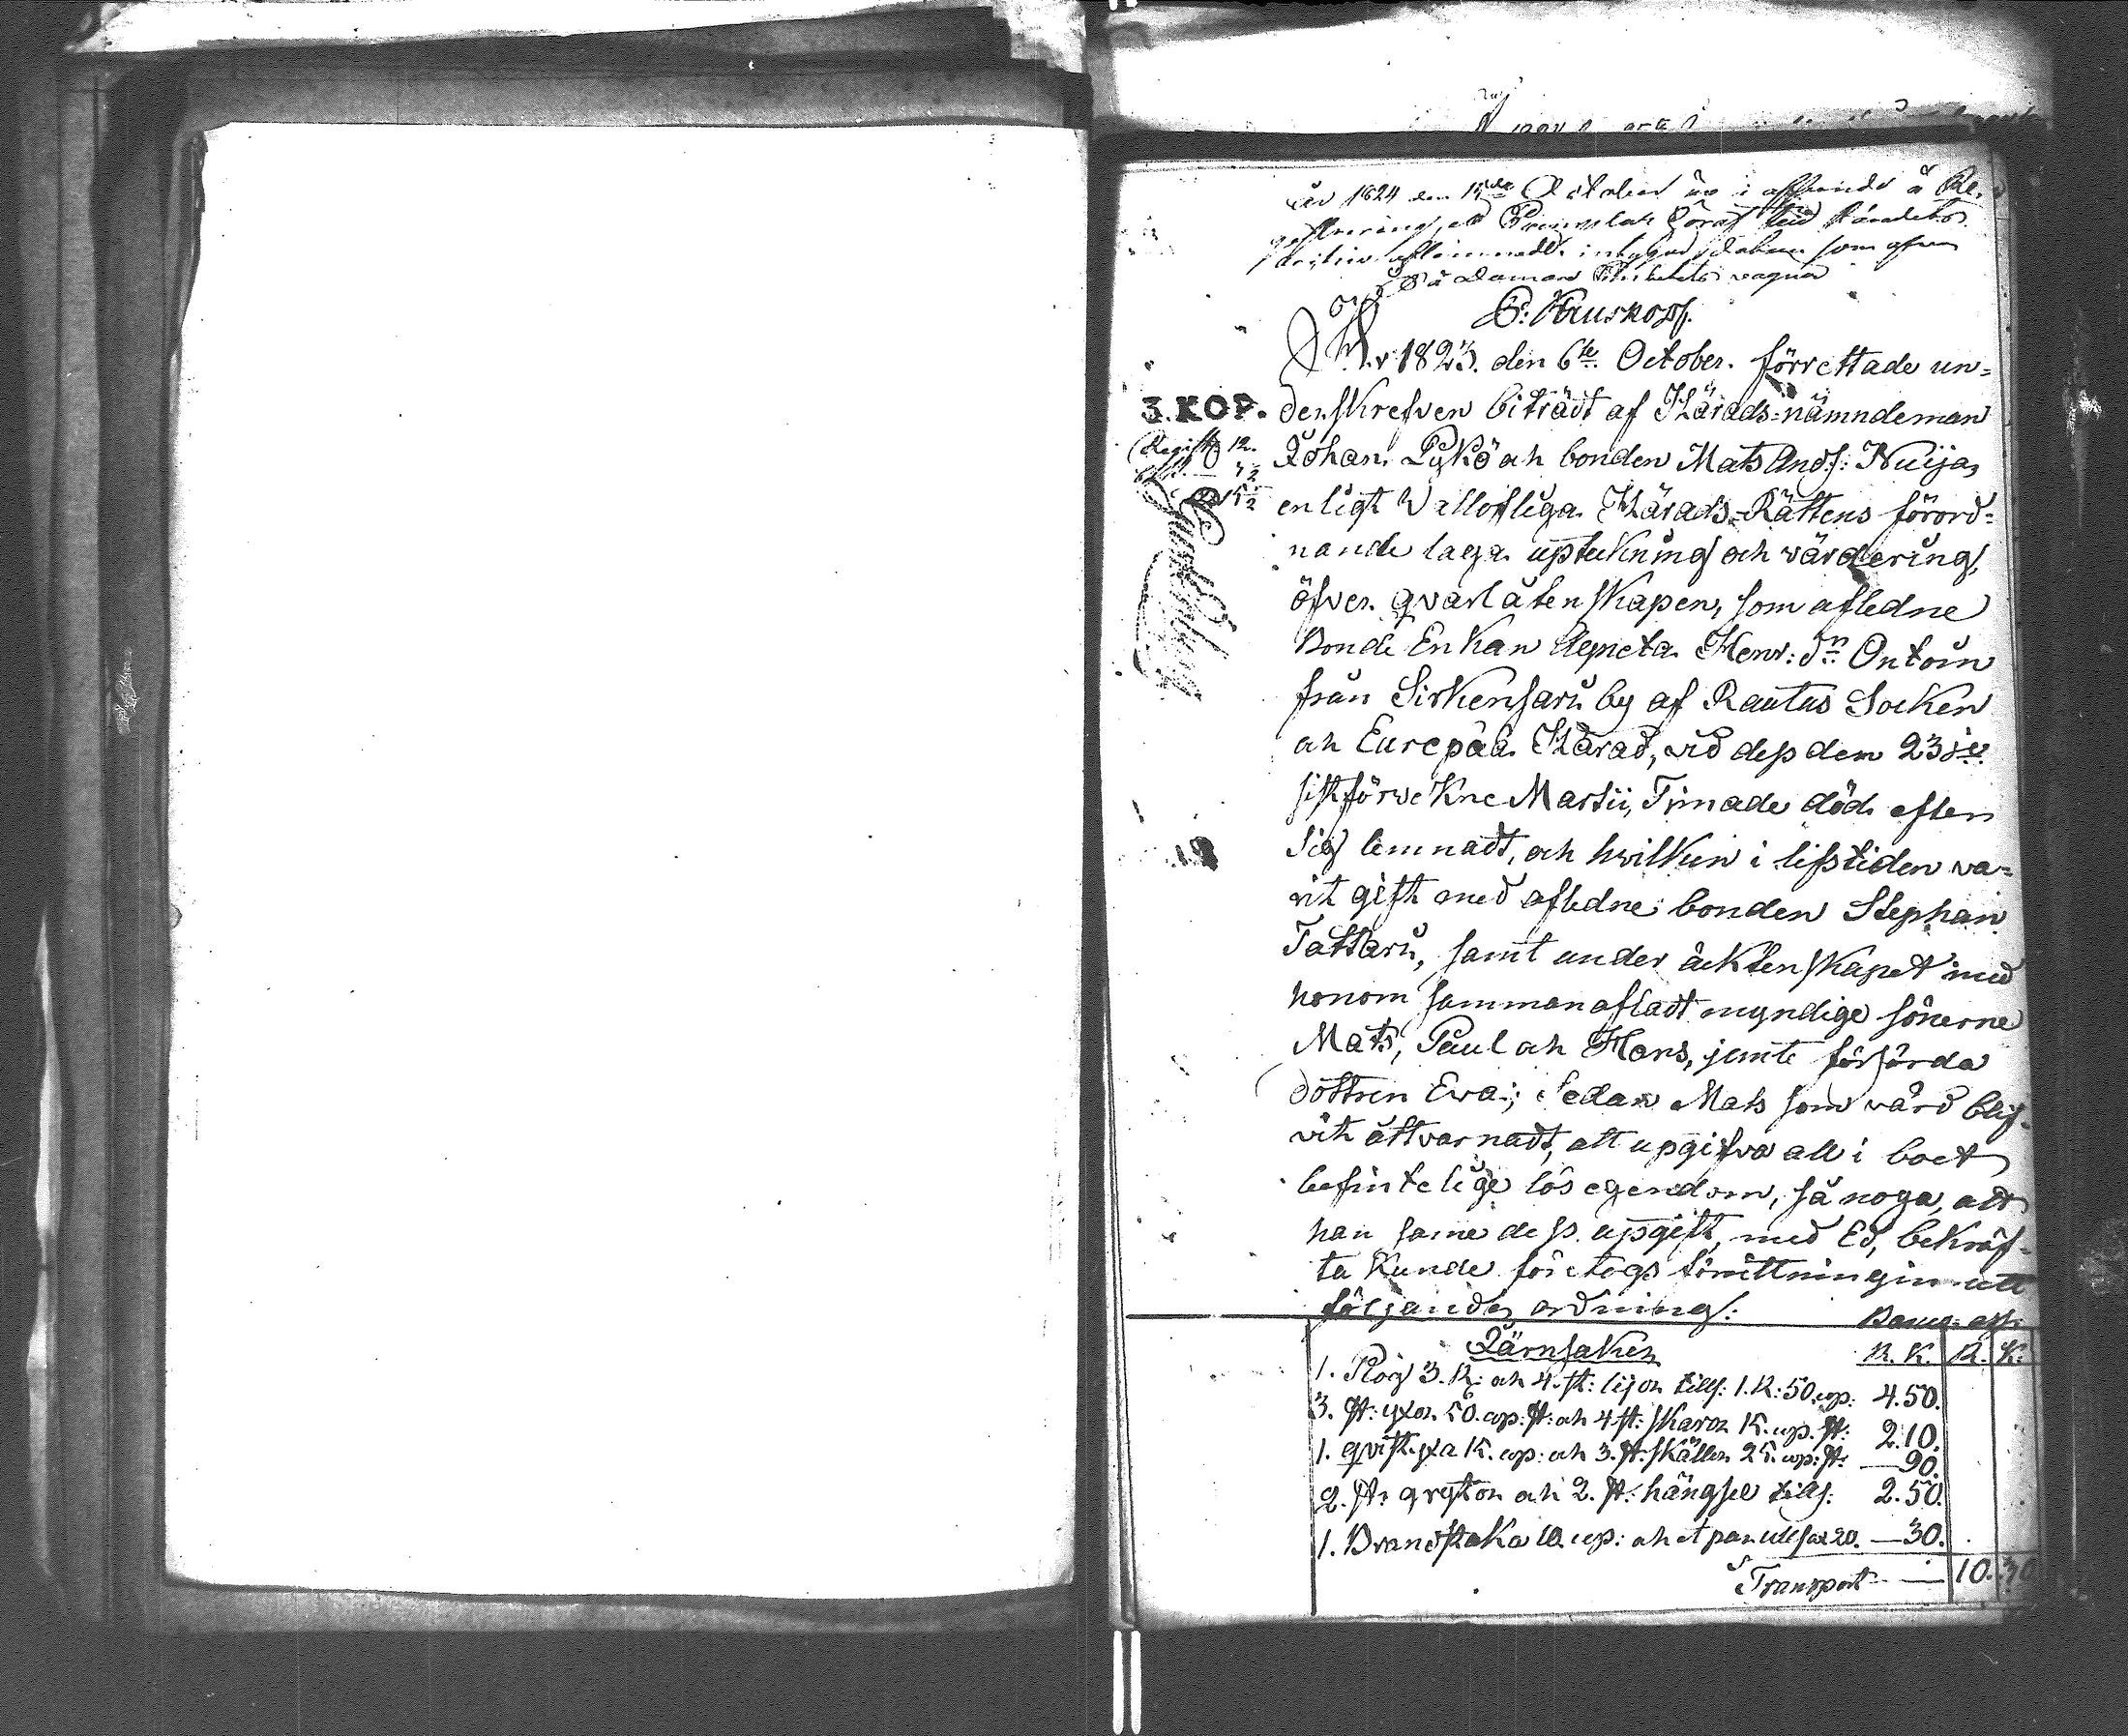 År 1824 den 15de October är i afseende å Re-
ett Exemplar häraf till Häradets
aflemnadt, intygar som ofvan
På Domare Embetets vägnar
C: Kruskopf.
År 1823. den 6te October. förrettade un-
3. KOP.
derskrefven biträdt af Härads-nämndeman
Johan Pykö och bonden Mats And:s: Nuija,
enligt Vällofliga Härads-Rättens förord-
nande laga upteckning och värdering,
öfver qvarlåtenskapen, som afledne
Bonde Enkan Agneta Henr: dr Ontoin
från Sirkensari by af Rautus Socken
och Eurepää Härad, vid dess den 23de
sistförvekne Martii, Timade död efter
sig lemnadt, och hvilken i lifstiden va-
rit gift med afledne bonden Stephan
Tattari, samt under äcktenskapet med
honom sammanafladt myndige sönerne
Mats, Paul och Hans, jemte försörda
dottren Eva; Sedan Mats som värd blif-
vit åtvarnadt, att upgifva all i boet
befintelige lösegendom, så noga, att
han same dess upgift, med Ed, bekräf-
ta kunde företogs förrättningen uti
följande ordning:
Banco ass:
Järnsaker
R. K. R. K.
1. Plog 3. R: och 4. st: lijor tills: 1. R: 50. cop: 4.50.
3. st: yxor 50. cop: st: och 4 st: skaror 15. cop. st: 2.10.
1. qvist yxa 15. cop: och 3. st: skällor 25. cop: st: — 90.
2. st: grytor och 2. st: hängsel tills: 2.50.
1. Brandstaka 10. cop: och et par 20. — 30.
Transport — 10.30